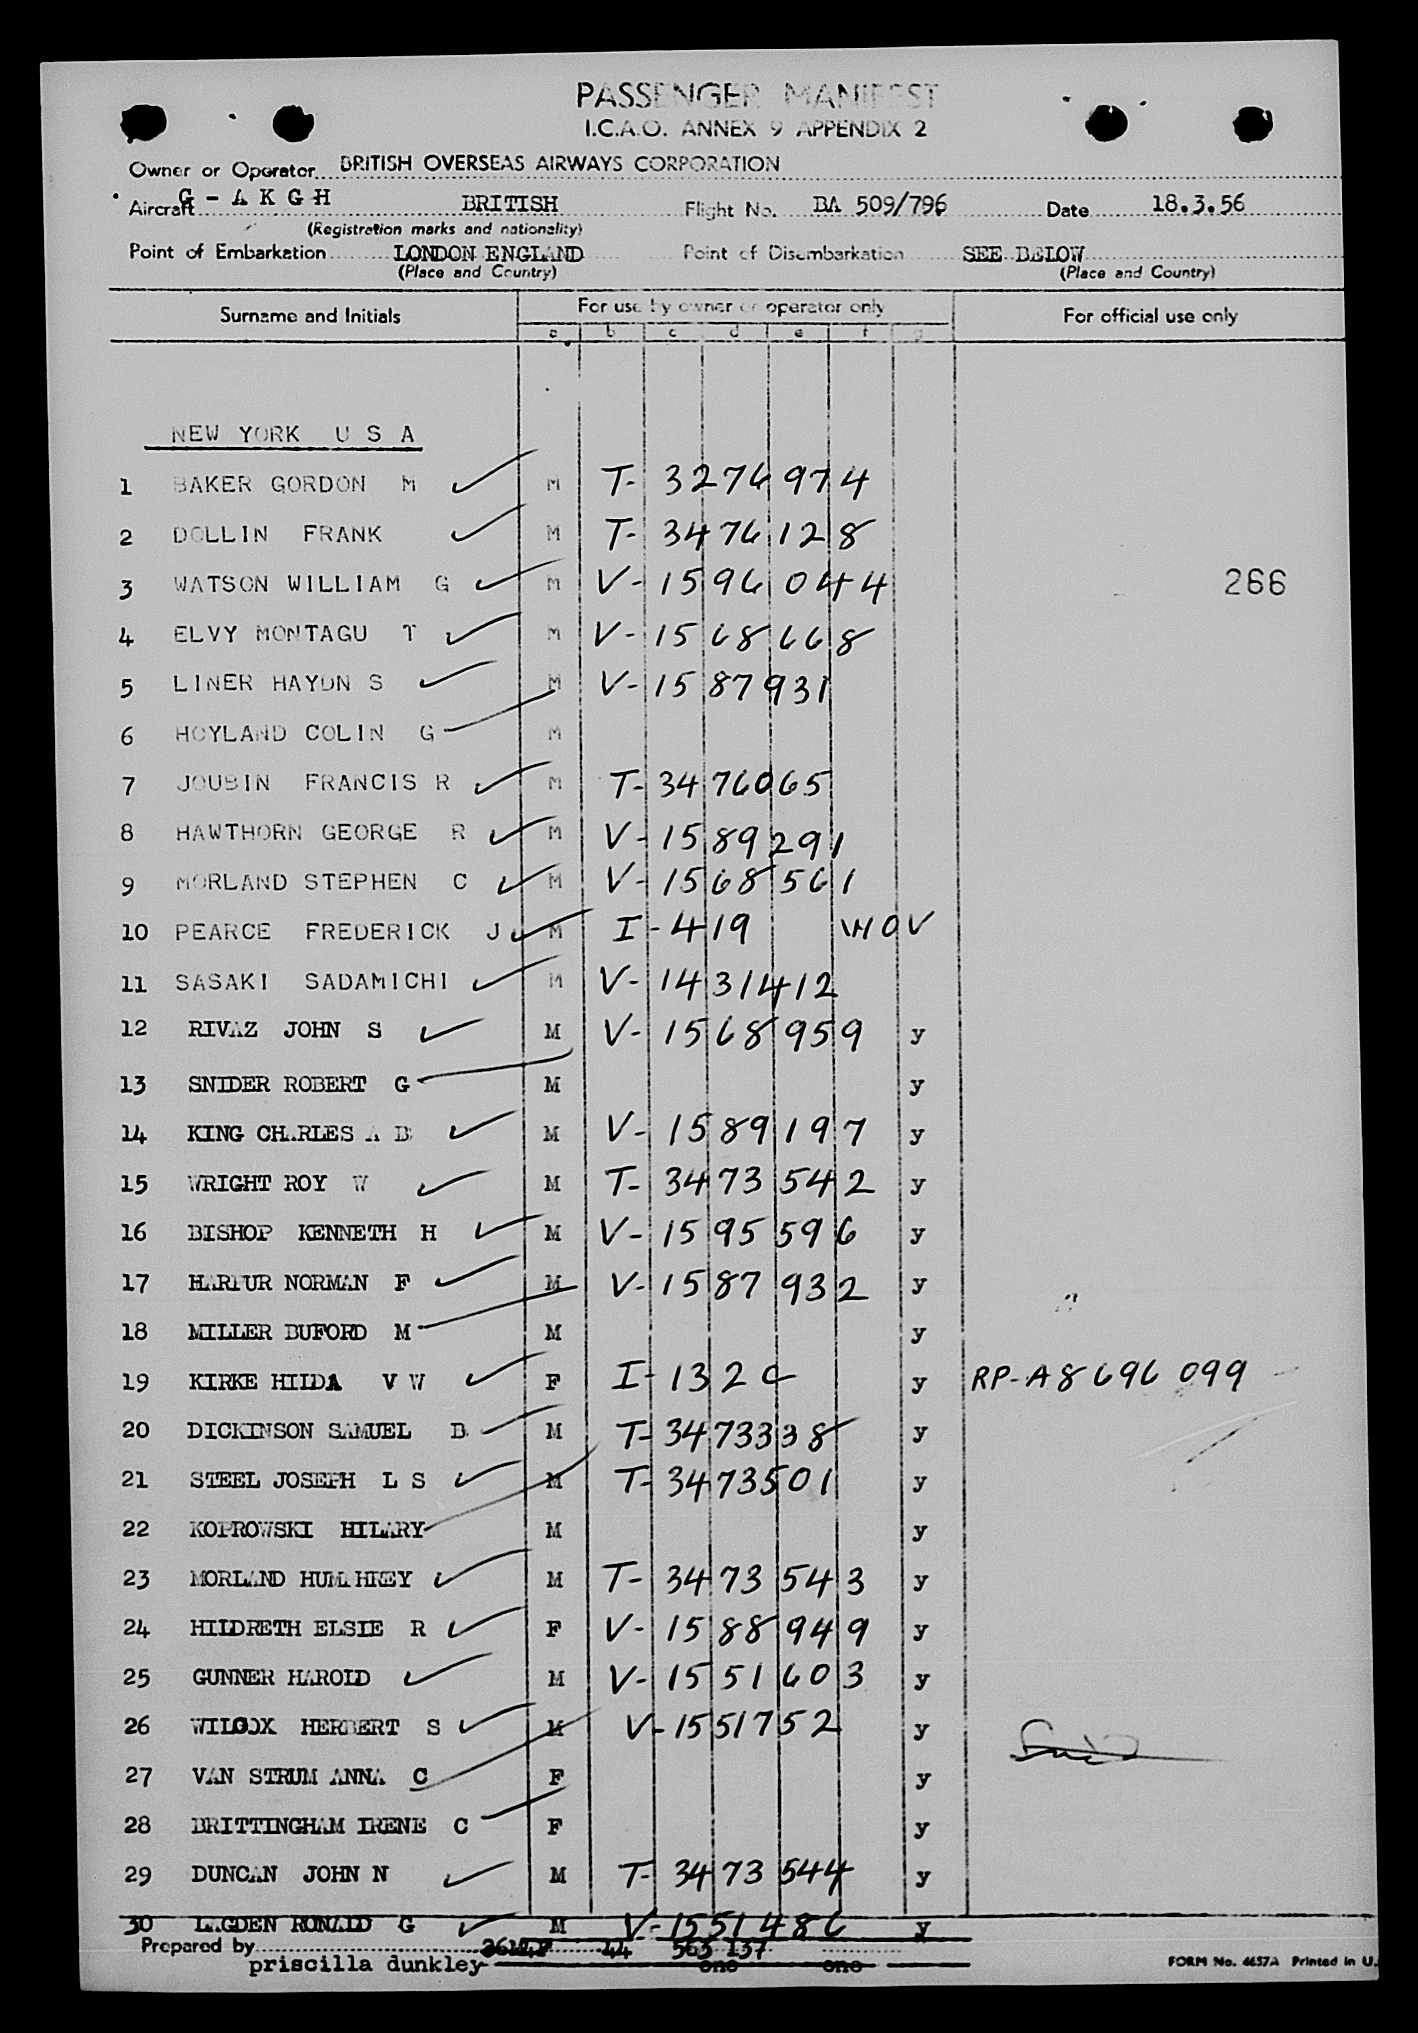 PASSENGER MANIFEST
I.C.A.O. ANNEX 9 APPENDIX 2
Owner or Operator BRITISH OVERSEAS AIRWAYS CORPORATION
Aircraft G - A K G H BRITISH Flight No. BA 509/796 Date 18.3.56
(Registration marks and nationality)
Point of Embarkation LONDON ENGLAND Point of Disembarkation SEE BELOW
(Place and Country) (Place and Country)
Surname and Initials For use by owner or operator only For official use only
a b c d e f g
NEW YORK U S A
1 BAKER GORDON M M T- 3276974
2 DOLLIN FRANK M T- 3476128
3 WATSON WILLIAM G M V-1596044 266
4 ELVY MONTAGU T M V-1568668
5 LINER HAYDN S M V-1587931
6 HOYLAND COLIN G M
7 JOUBIN FRANCIS R M T-3476065
8 HAWTHORN GEORGE R M V-1589291
9 MORLAND STEPHEN C M V-1568561
10 PEARCE FREDERICK J M I-419 WOV
11 SASAKI SADAMICHI M V-1431412
12 RIVAZ JOHN S M V-1568959 y
13 SNIDER ROBERT G M y
14 KING CHARLES A B M V-1589197 y
15 WRIGHT ROY W M T-3473542 y
16 BISHOP KENNETH H M V-1595596 y
17 HARPUR NORMAN F M V-1587932 y
18 MILLER BUFORD M M y
19 KIRKE HILDA V W F I-132c y RP-A8696099
20 DICKINSON SAMUEL B M T-3473338 y
21 STEEL JOSEPH L S M T-3473501 y
22 KOPROWSKI HILARY M y
23 MORLAND HUMPHREY M T-3473543 y
24 HILDRETH ELSIE R F V-1588949 y
25 GUNNER HAROLD M V-1551603 y
26 WILCOX HERBERT S M V-1551752 y
27 VAN STRUM ANNA C F y
28 BRITTINGHAM IRENE C F y
29 DUNCAN JOHN N M T-3473544 y
30 LAGDEN RONALD G M V-1551486 y
Prepared by 44 563 137
priscilla dunkley ono ono FORM No. 4657A Printed in U.